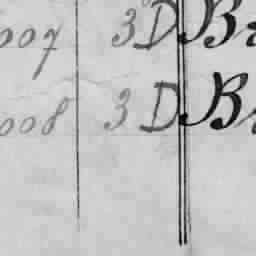 007 3D Br
008 3D Br